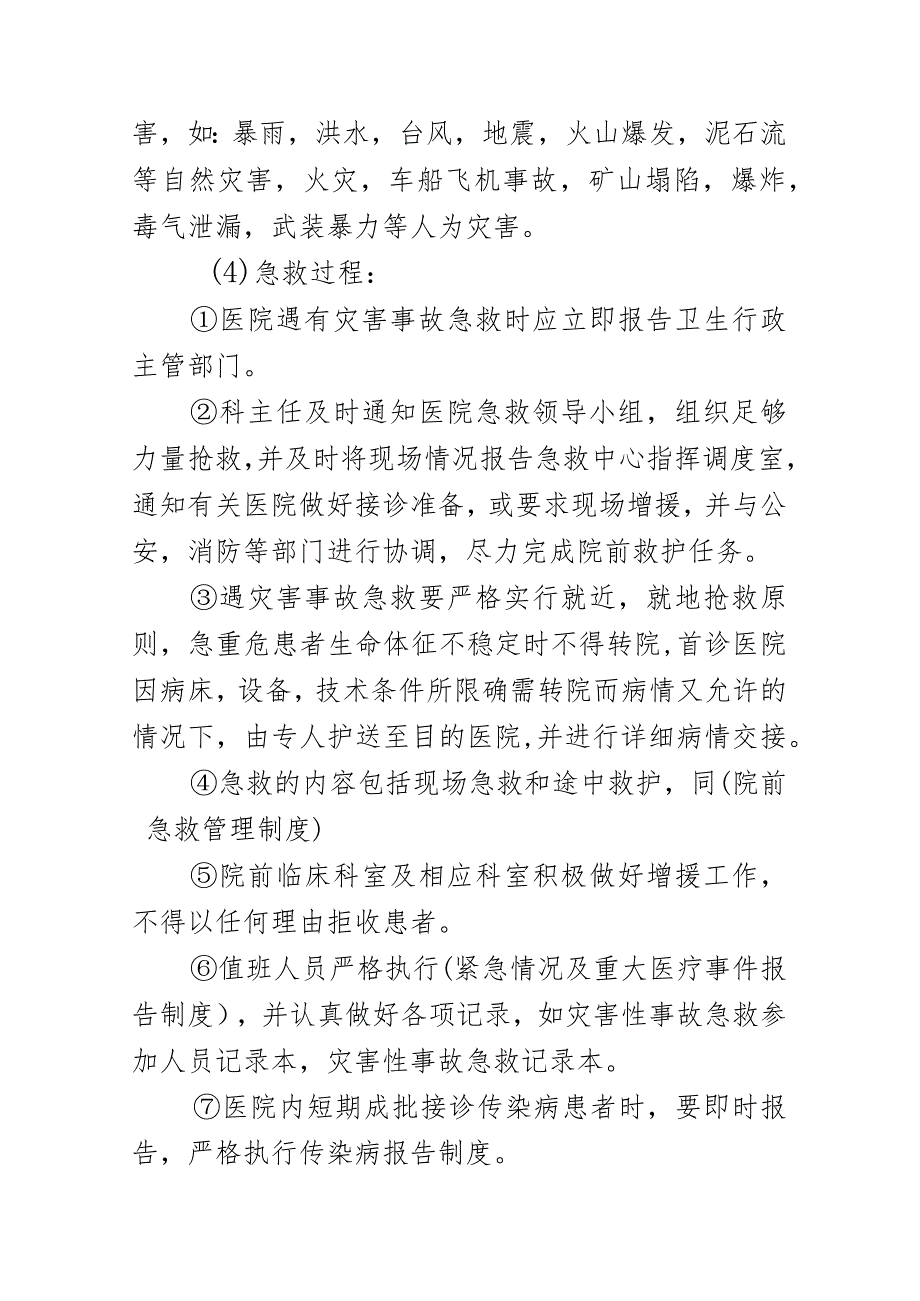 害，如：暴雨，洪水，台风，地震，火山爆发，泥石流
等自然灾害，火灾，车船飞机事故，矿山塌陷，爆炸，
毒气泄漏，武装暴力等人为灾害。
(4)急救过程：
①医院遇有灾害事故急救时应立即报告卫生行政
主管部门。
②科主任及时通知医院急救领导小组，组织足够
力量抢救,并及时将现场情况报告急救中心指挥调度室，
通知有关医院做好接诊准备，或要求现场增援，并与公
安，消防等部门进行协调，尽力完成院前救护任务。
③遇灾害事故急救要严格实行就近，就地抢救原
则，急重危患者生命体征不稳定时不得转院,首诊医院
因病床，设备，技术条件所限确需转院而病情又允许的
情况下，由专人护送至目的医院,并进行详细病情交接。
④急救的内容包括现场急救和途中救护，同(院前
急救管理制度)
⑤院前临床科室及相应科室积极做好增援工作，
不得以任何理由拒收患者。
⑥值班人员严格执行(紧急情况及重大医疗事件报
告制度），并认真做好各项记录，如灾害性事故急救参
加人员记录本，灾害性事故急救记录本。
⑦医院内短期成批接诊传染病患者时，要即时报
告，严格执行传染病报告制度。